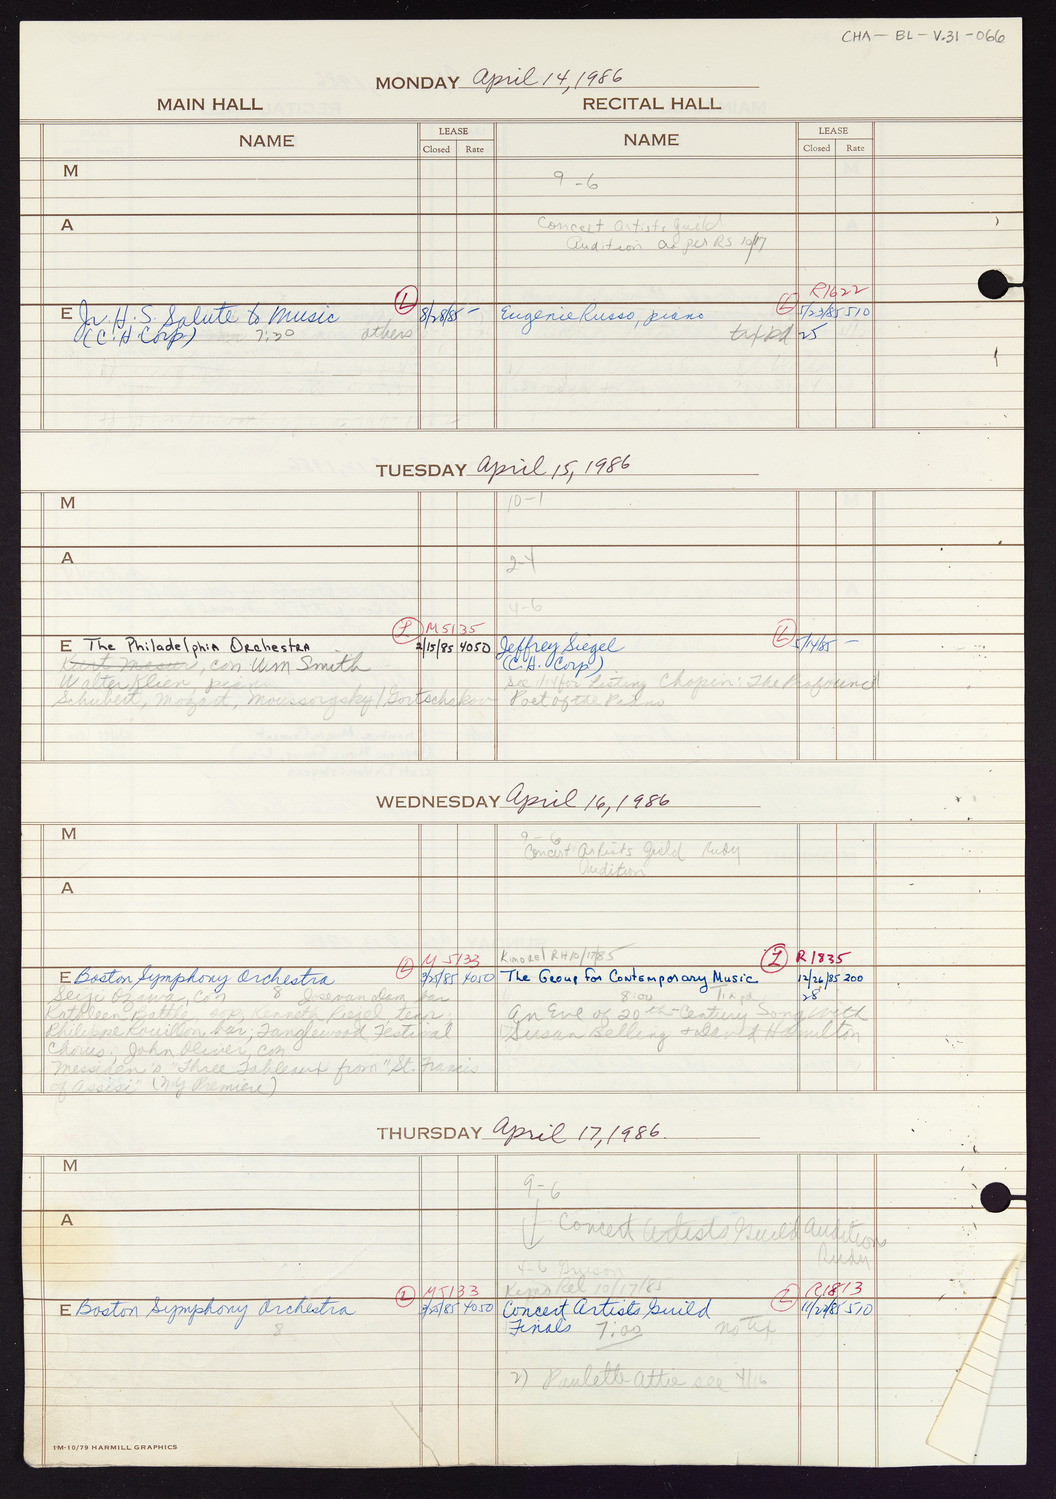 CHA-BL-V.31-066
MONDAY April 14, 1986
MAIN HALL RECITAL HALL
NAME LEASE Closed Rate NAME LEASE Closed Rate
M
9-6
A
Concert Artists Guild
Audition as per RS 10/17
R1622
E Jr. H. S. Salute to Music L 8/28/85 - Eugenie Russo, piano L 5/23/85 510
(C.H. Corp) 7:30 others tax pd 25
TUESDAY April 15, 1986
M 10-1
A 2-4
4-6
L M5135
E The Philadelphia Orchestra 2/15/85 4050 Jeffrey Siegel L 5/14/85 -
, con Wm Smith (C.H. Corp)
Walter Klien, piano see 1/14 for listing Chopin: The Profound
Schubert, Mozart, Moussorgsky/Gortschakov Poet of the Piano
WEDNESDAY April 16, 1986
M 9-6
Concert Artists Guild Rudy
Audition
A
L M5133 10/17/85 L R1835
E Boston Symphony Orchestra 3/25/85 4050 The Group for Contemporary Music 12/26/85 200
Seiji Ozawa, con 8 Jose van Dam bar 8:00 28
Kathleen Battle, sop, Kenneth Riegel, tenor An Eve of 20th-Century Song with
Philippe Rouillon bar; Tanglewood Festival Susan Belling + David Hamilton
Chorus; John Oliver, con
Messiaen's "Three Tableaux from "St. Francis
of Assisi" (NY Premiere)
THURSDAY April 17, 1986.
M
9-6
A
Concert Artists Guild Auditions
Rudy
4-6
10/17/85
L M5133 L R1813
E Boston Symphony Orchestra 3/25/85 4050 Concert Artists Guild 11/27/85 510
8 Finals 7:00 no tix
2) Paulette Attie see 4/16
1M-10/79 HARMILL GRAPHICS